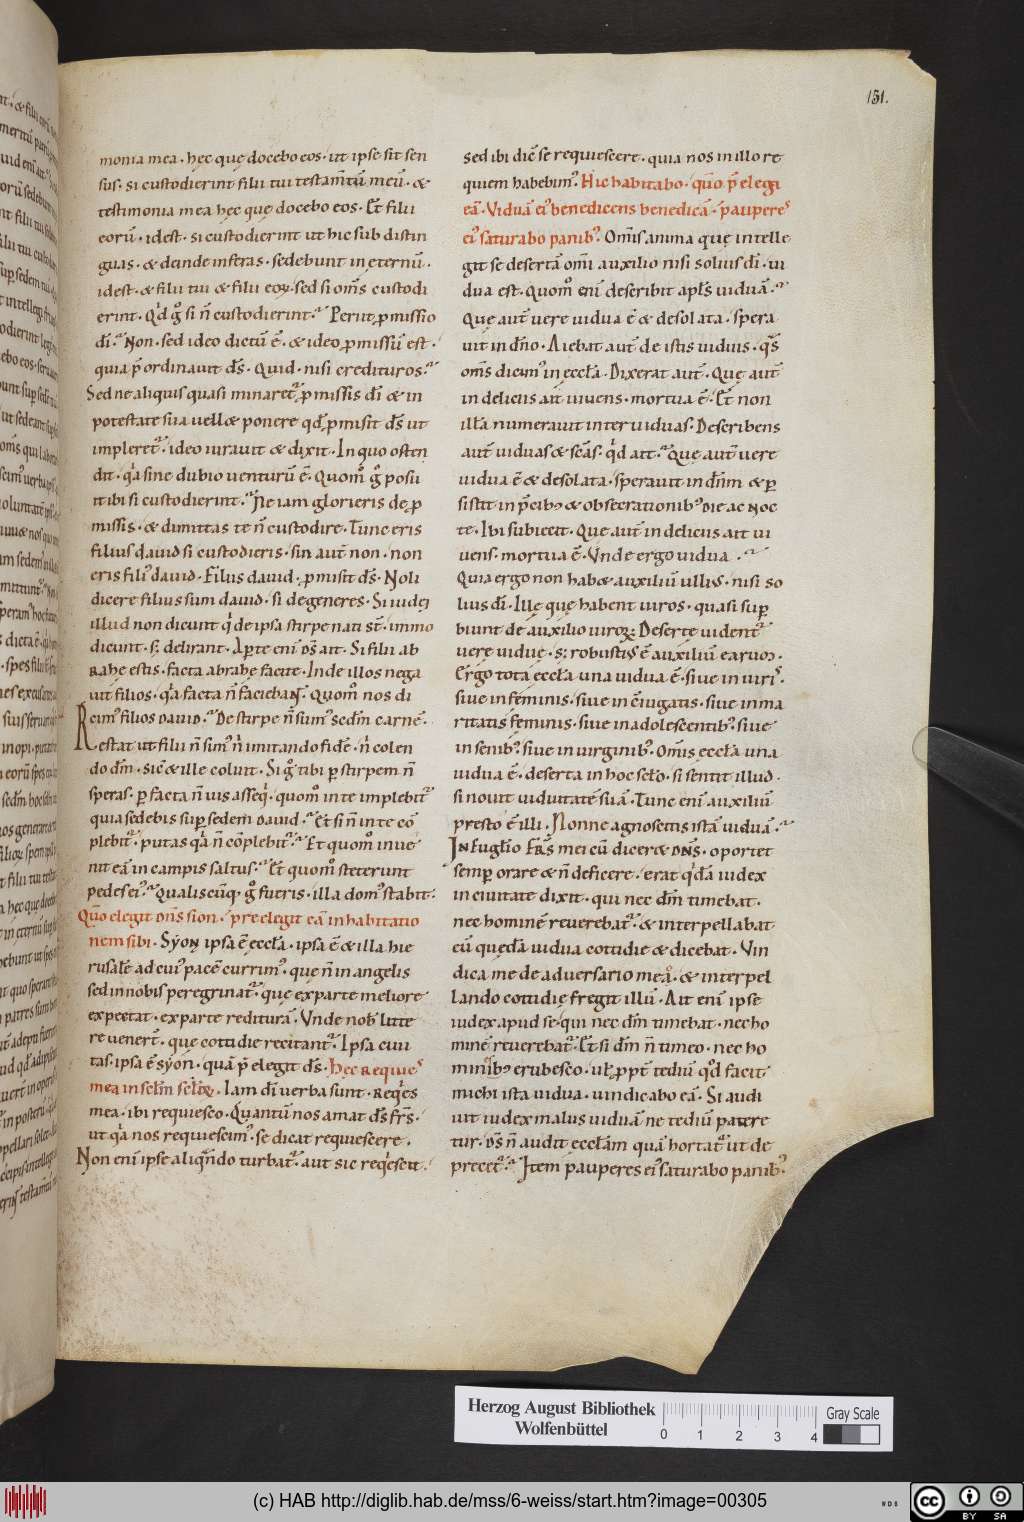 151.
monia mea. hęc quę docebo eos. ut ipse sit sen
sus. si custodierint filii tui testam̅tū meū. &
testimonia mea hęc quę docebo eos. Et filii
eorū. idest. si custodierint ut hic sub distin
guas. & deinde inferas. sedebunt in ęternū.
idest. & filii tui & filii eoꝝ. sed si om̅s custodi
erint. Qd̍ g̊ si n̅ custodierint? Periit ꝓmissio
di̅? Non. sed ideo dictū ē. & ideo ꝓmissū est.
quia p̅ordinauit d̅s. Quid. nisi credituros?
Sed ne aliquis quasi minaret᷑ ꝓmissis di̅ & in
potestate sua uell& ponere qd̅ ꝓmisit d̅s ut
impleret᷑. ideo iurauit & dixit. In quo osten
dit. qa̍ sine dubio venturū ē. Quom̊ g̊ posu
it ibi si custodierint? Ne iam glorieris de ꝓ
missis. & dimittas te n̅ custodire. Tunc eris
filius dauid si custodieris. sin aut̅ non. non
eris fili᷒ dauid. Filius dauid. ꝓmisit d̅s. Noli
dicere filius sum dauid. si degeneres. Si iudęi
illud non dicunt qi̍ de ipsa stirpe nati st̅. immo
dicunt. s; delirant. Aꝑte eni̅ dn̅s ait. Si filii ab
rahę estis. facta abrahę facite. Inde illos nega
uit filios. qa̍ facta n̅ faciebant. Quom̊ nos di
cim᷒ filios dauid? De stirpe n̅ sum᷒ sc̅dm carnē.
Restat ut filii n̅ sim᷒ ni̍ imitando fidē. ni̍ colen
do dm̅. sic̅ & ille coluit. Si g̊ tibi ꝑ stirpem n̅
speras. ꝑ facta n̅ uis asseq̍. quom̊ in te implebit᷑
quia sedebis suꝑ sedem dauid? Et si n̅ in te cō
plebit᷑. putas qa̍ n̅ cōplebit᷑? Et quom̊ inue
nit eā in campis saltus? Et quom̊ steterunt
pedes ei᷒? Qualiscūq. g̊ fueris. illa dom᷒ stabit.
Qm̅o elegit dn̅s sion. pre elegit eā in habitatio
nem sibi. Syon ipsa ē ecclˉa. ipsa ē & illa hie
rusalē ad cui᷒ pacē currim᷒. que n̅ in angelis
sed in nobis peregrinat᷑. quę ex parte meliore
expectat. ex parte rediturā. Vnde nob̅ litte
rę uener̅t. quę cottidie recitant᷑. Ipsa ciui
tas. ipsa ē syon. quā p̅elegit d̅s. Hęc requies
mea in sclm̅ scli̅. Iam di̅ verba sunt. reqe̍s
mea. ibi requiesco. Quantū nos amat d̅s frs̅.
ut qa̍ nos requiescim᷒. se dicat requiescere.
Non eni̅ ipse aliqn̅do turbat᷑. aut sic req̍escit.
sed ibi dic̅ se requiescere. quia nos in illo re
quiem habebim᷒. Hic habitabo. qm̅o p̅elegi
eā. Viduā ei᷒ benedicens benedicā. pauperes
ei᷒ saturabo panib᷒. Omis̅ anima quę intelle
git se desertā omi̅ auxilio nisi solius di̅. ui
dua est. Quom̊ eni̅ describit apls̅ viduā?
Quę aut̅ vere vidua ē & desolata. spera
uit in dn̅o. Aiebat aut̅ de istis viduis. qs̍
om̅s dicim᷒ in ecclˉa. Dixerat aut̅. Quę aut̅
in deliciis ait viuens. mortua ē. Et non
illā numerauit inter viduas. Describens
aut̅ viduas & sc̅as. qd̍ ait? Quę aut̅ vere
vidua ē & desolata. sperauit in dn̅m & ꝑ
sistit in p̅cib᷒ & obsecrationib᷒ die ac noc
te. Ibi subiecit. Quę aut̅ in deliciis ait ui
uens. mortua ē. Vnde ergo vidua?
Quia ergo non hab& auxiliū ullius. nisi so
lius di̅. Illę quę habent uiros. quasi suꝑ
biunt de auxilio uiroꝝ. Desertę uident᷑
vere viduę. s; robustius ē auxiliū earum.
Ergo tota ecclˉa una vidua ē. siue in uiris.
siue in feminis. siue in c̅iugatis. siue in ma
ritatis feminis. siue in adolescentib᷒. siue
in senib᷒. siue in uirginib᷒. Omis̅ ecclˉa una
vidua ē. deserta in hoc sclo̅. si sentit illud.
si nouit viduitatē suā. Tunc eni̅ auxiliū
pręsto ē illi. Nonne agnoscitis istā viduā?
In euglˉio frs̅ mei cū dicer& dn̅s. oportet
semꝑ orare & n̅ deficere. erat qda̍ iudex
in ciuitate dixit. qui nec dm̅ timebat.
nec hominē reuerebat᷑. & interpellabat
eū quęda̅ vidua cottidie & dicebat. Vin
dica me de aduersario meo. & interpel
lando cottidie fregit illū. Ait eni̅ ipse
iudex apud se. qui nec dm̅ timebat. nec ho
minē reuerebat᷑. Et si dm̅ n̅ timeo. nec ho
minib᷒ erubesco. ul̅ ꝓpt̅ tediū. qd̊ facit
michi ista vidua. vindicabo eā. Si audi
uit iudex malus viduā ne tediū patere
tur. dn̅s n̅ audit eccla̅m quā hortat᷑ ut de
precet᷑? Item pauperes ei᷒ saturabo panib᷒.
Herzog August Bibliothek
Wolfenbüttel
0 1 2 3 4
Gray Scale
(c) HAB http://diglib.hab.de/mss/6-weiss/start.htm?image=00305
WDB
cc BY SA